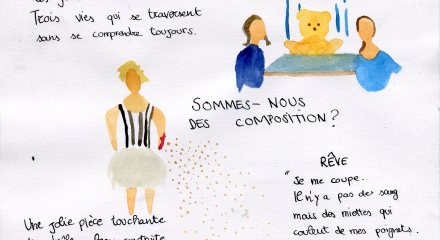 Trois vies qui se traversent
sans se comprendre toujours.
SOMMES-NOUS
DES COMPOSITION?
RÊVE
"Je me coupe.
Il n'y a pas de sang
mais des miettes qui
coulent de mes poignets.
Une jolie pièce touchante